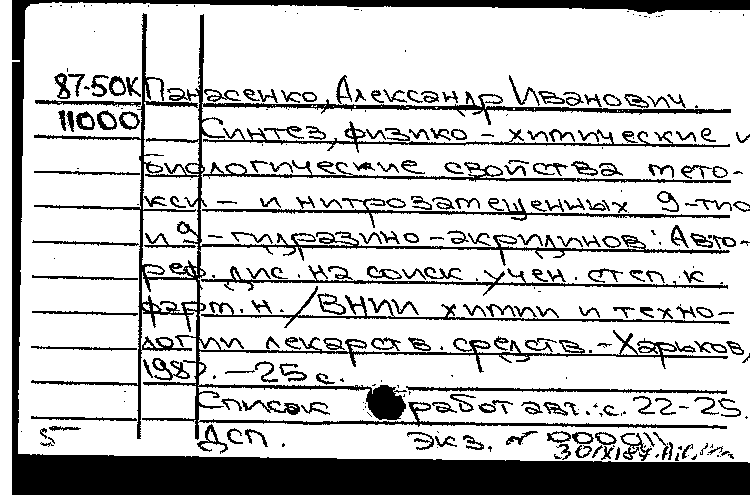 87-50К Панасенко, Александр Иванович.
11000 Синтез, физико-химические и
биологические свойства мето-
кси- и нитрозамещенных 9-тио
и 9-гидразино-акридинов: Авто-
реф. дис. на соиск. учен. степ. к.
фарм. н. / ВНИИ химии и техно-
логии лекарств. средств. - Харьков,
1987. - 25 с.
Список работ авт.: с. 22-25.
5 ДСП. Экз. №